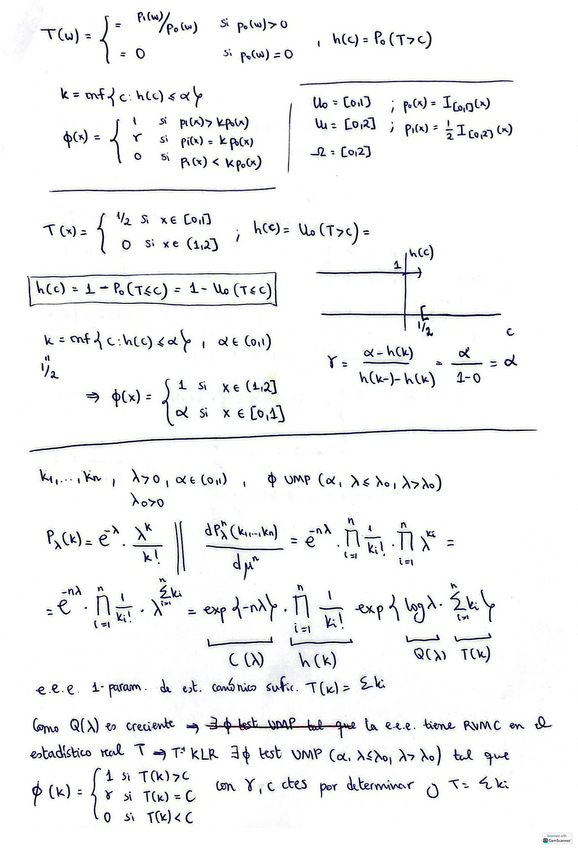 T(w) = { = p₁(w)/p₀(w) si p₀(w)>0
= 0 si p₀(w)=0 , h(c) = P₀(T>c)
k = inf{c: h(c) ≤ α}
φ(x) = { 1 si p₁(x) > k p₀(x)
r si p₁(x) = k p₀(x)
0 si p₁(x) < k p₀(x)
U₀ = [0,1] ; p₀(x) = I_{[0,1]}(x)
U₁ = [0,2] ; p₁(x) = ½ I_{[0,2]}(x)
Ω = [0,2]
T(x) = { 1/2 si x ∈ [0,1]
0 si x ∈ (1,2] ; h(c) = U₀(T>c) =
h(c) = 1 - P₀(T≤c) = 1 - U₀(T≤c)
h(c)
1
1/2
c
k = inf{c: h(c) ≤ α} , α ∈ (0,1)
"
1/2
r = (α-h(k))/(h(k-)-h(k)) = α/(1-0) = α
⇒ φ(x) = { 1 si x ∈ (1,2]
α si x ∈ [0,1]
k₁,...,kₙ , λ>0, α∈(0,1) , φ UMP (α, λ≤λ₀, λ>λ₀)
λ₀>0
P_λ(k) = e^{-λ} · λ^k/k! || dP_λ^n(k₁,...,kₙ)/dμ^n = e^{-nλ} · ∏_{i=1}^n 1/kᵢ! · ∏_{i=1}^n λ^{kᵢ} =
= e^{-nλ} · ∏_{i=1}^n 1/kᵢ! · λ^{∑_{i=1}^n kᵢ} = exp{-nλ} · ∏_{i=1}^n 1/kᵢ! exp{log λ · ∑_{i=1}^n kᵢ}
C(λ) h(k) Q(λ) T(k)
e.e.e. 1-param. de est. canónico sufic. T(k) = Σki
Como Q(λ) es creciente ⇒ ∃ φ test UMP tal que la e.e.e. tiene RVMC en el
estadístico real T ⇒ Tª KLR ∃ φ test UMP (α, λ≤λ₀, λ>λ₀) tal que
φ(k) = { 1 si T(k)>C
r si T(k)=C
0 si T(k)<C con r, c ctes por determinar y T = Σki
Scanned with
CamScanner